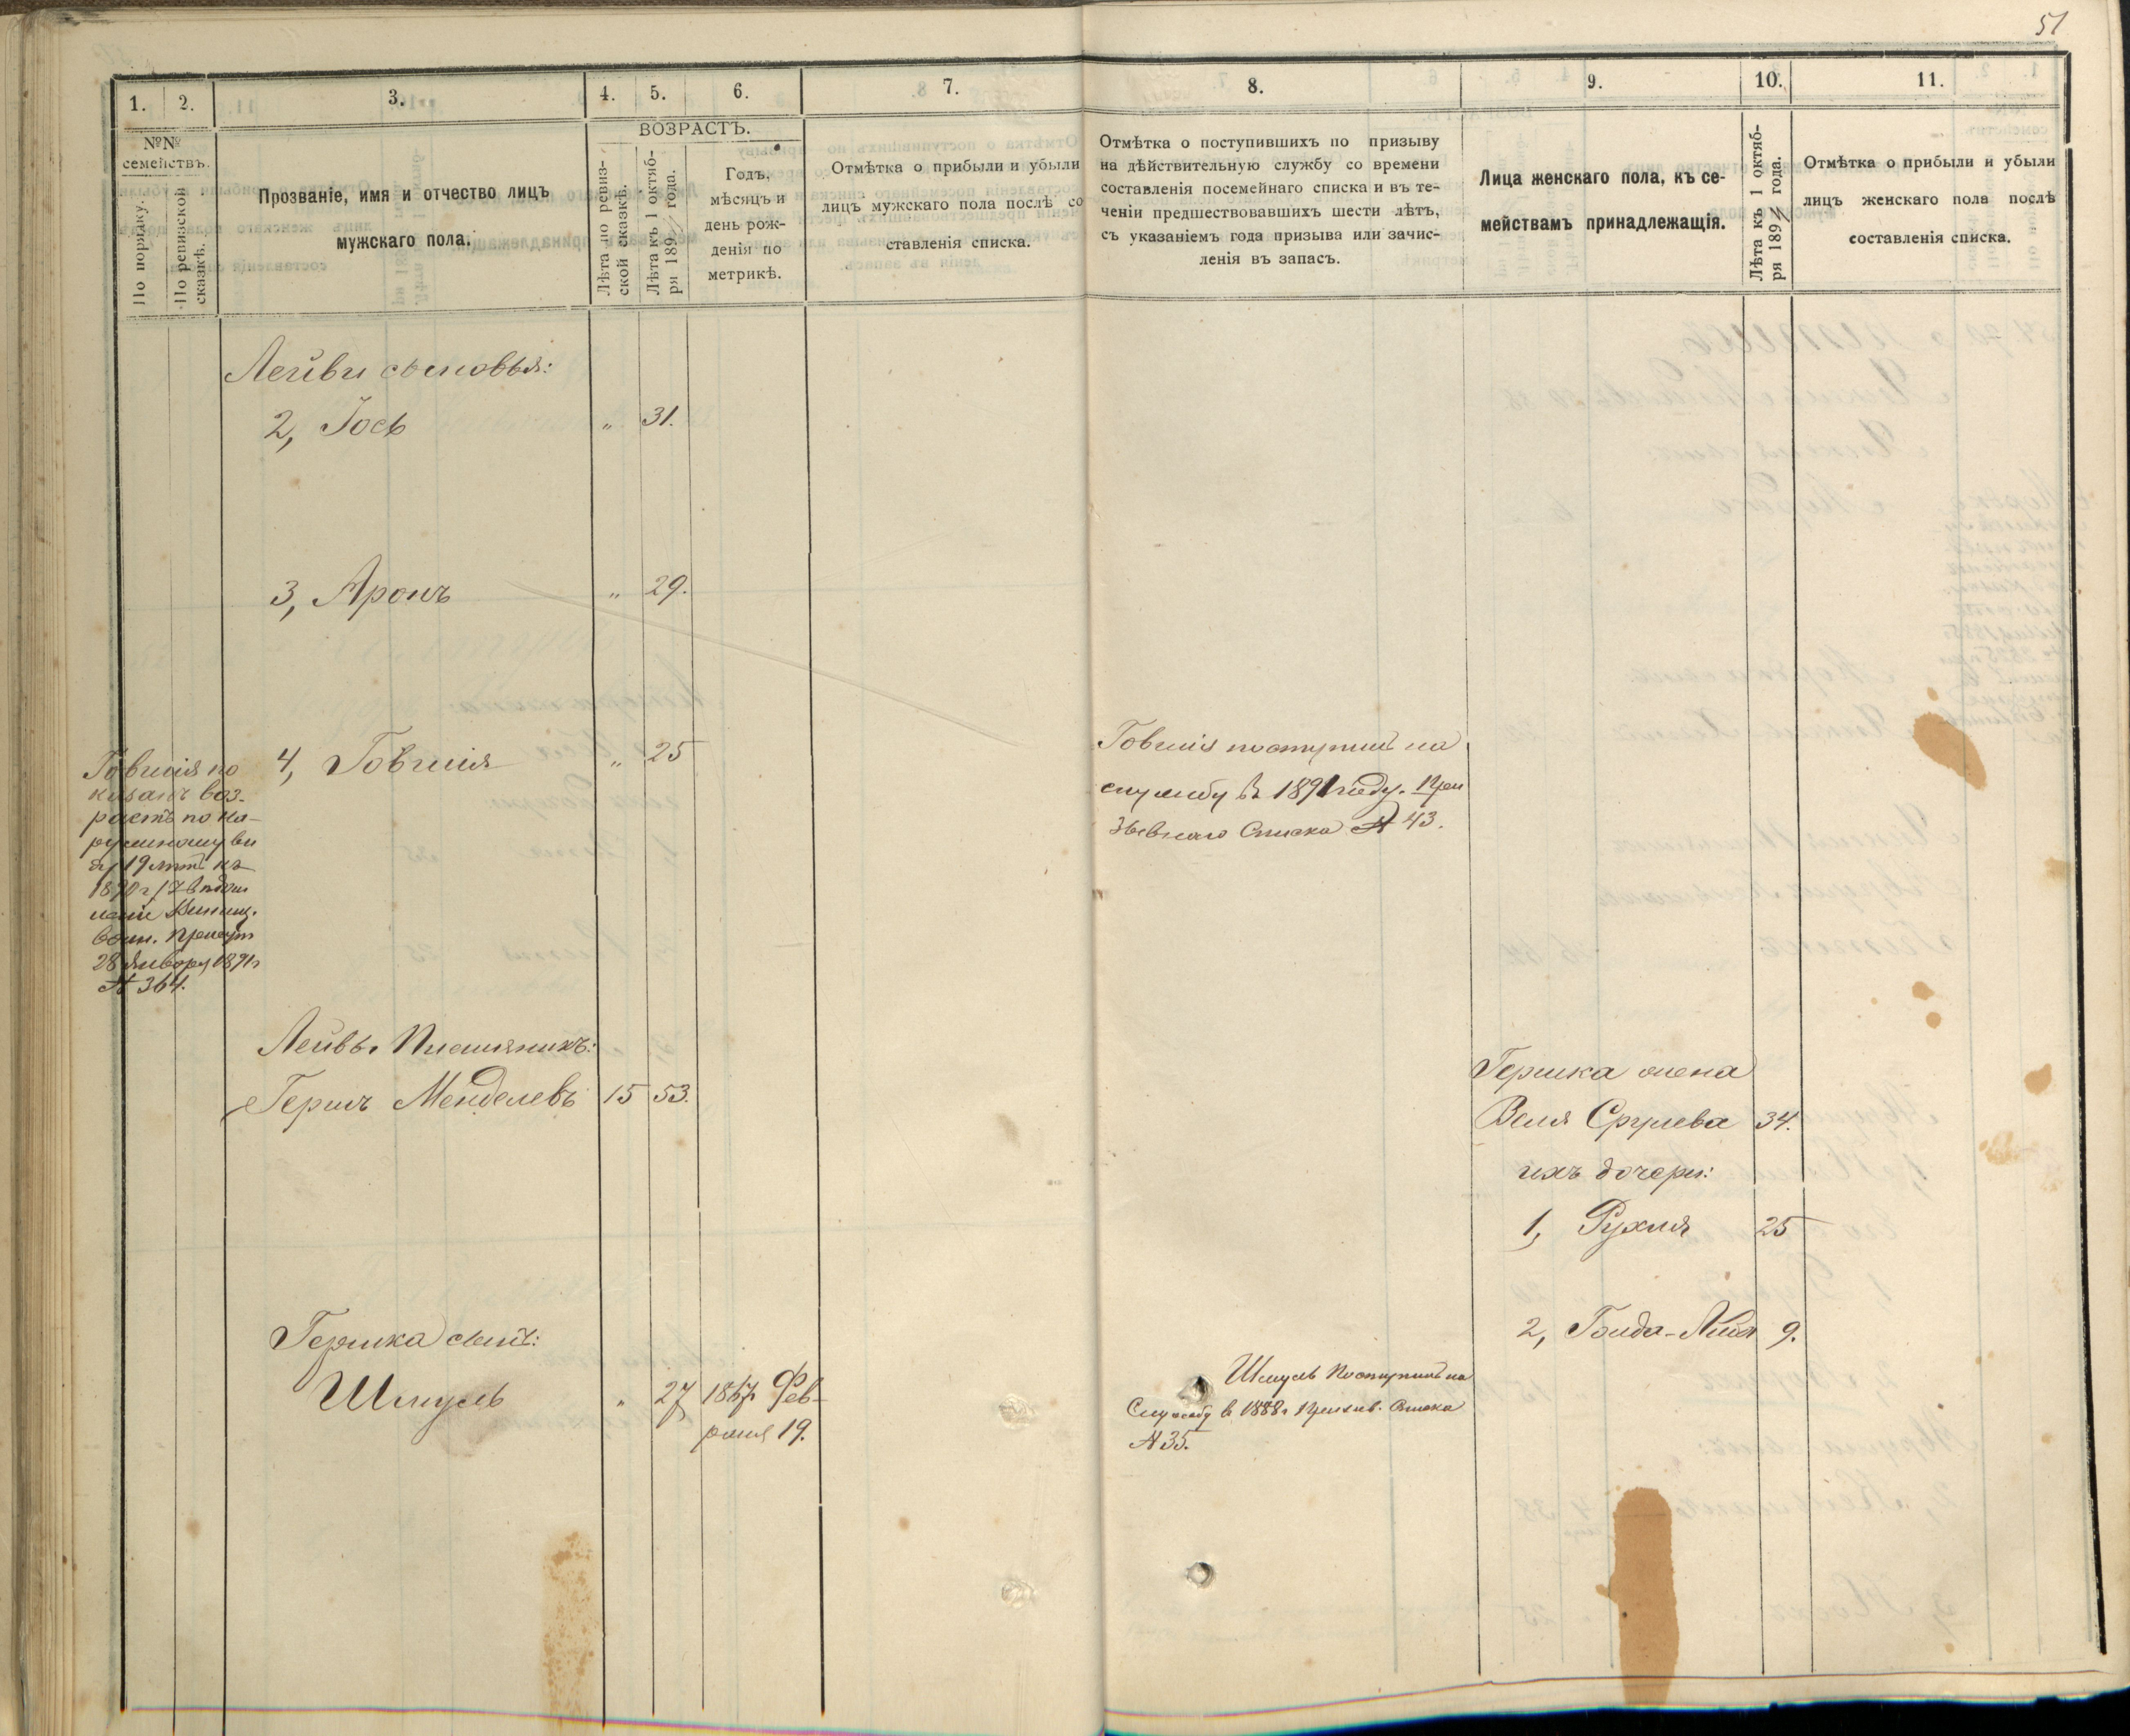 51
1.
2.
3.
4.
5.
6.
7.
8.
9.
10.
11.
№№
семействъ.
По порядку.
По ревизской
сказкѣ.
Прозваніе, имя и отчество лицъ
мужскаго пола.
ВОЗРАСТЪ.
Лѣта по ревиз-
ской сказкѣ.
Лѣта къ 1 октяб-
ря 189 года.
Годъ,
мѣсяцъ и
день рож-
денія по
метрикѣ.
Отмѣтка о прибыли и убыли
лицъ мужскаго пола послѣ со
ставленія списка.
Отмѣтка о поступившихъ по призыву
на дѣйствительную службу со времени
составленія посемейнаго списка и въ те-
ченіи предшествовавшихъ шести лѣтъ,
съ указаніемъ года призыва или зачис-
ленія въ запасъ.
Лица женскаго пола, къ се-
мействамъ принадлежащія.
Лѣта къ 1 октяб-
ря 189 года.
Отмѣтка о прибыли и убыли
лицъ женскаго пола послѣ
составленія списка.
Лейви сыновья:
2, Іось " 31.
3, Аронъ " 29.
4, Говшія " 25
Говшія по
казанъ воз-
растъ по на-
ружному ви
ду 19 лѣтъ къ
1890 г
Винниц.
воин. присут
28 Января 1891 г
№ 364.
Говшія поступилъ на
службу въ 1891 году. При
зывнаго Списка № 43.
Лейвы Племянникъ:
Гершъ Менделевъ 15 53.
Гершка жена
Веля Срулева 34.
ихъ дочери:
1, Рухля 25
2, Голда- 9.
Гершка сынъ:
Шмуль " 27 1867 Фев-
раля 19.
Шмуль Поступилъ на
Службу в 1888 г Призыв. Списка
№ 35.